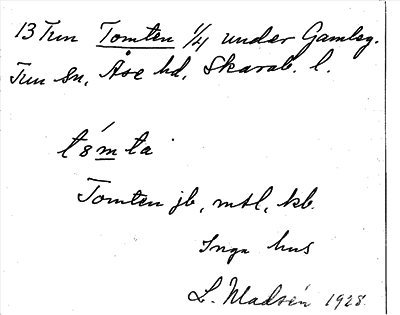 13 Tun Tomten 1/4 under Gamleg.
Tun sn, Åse hd, Skarab. l.
tómta
Tomten jb, mtl, kb.
Inga hus
L. Madsén 1928.